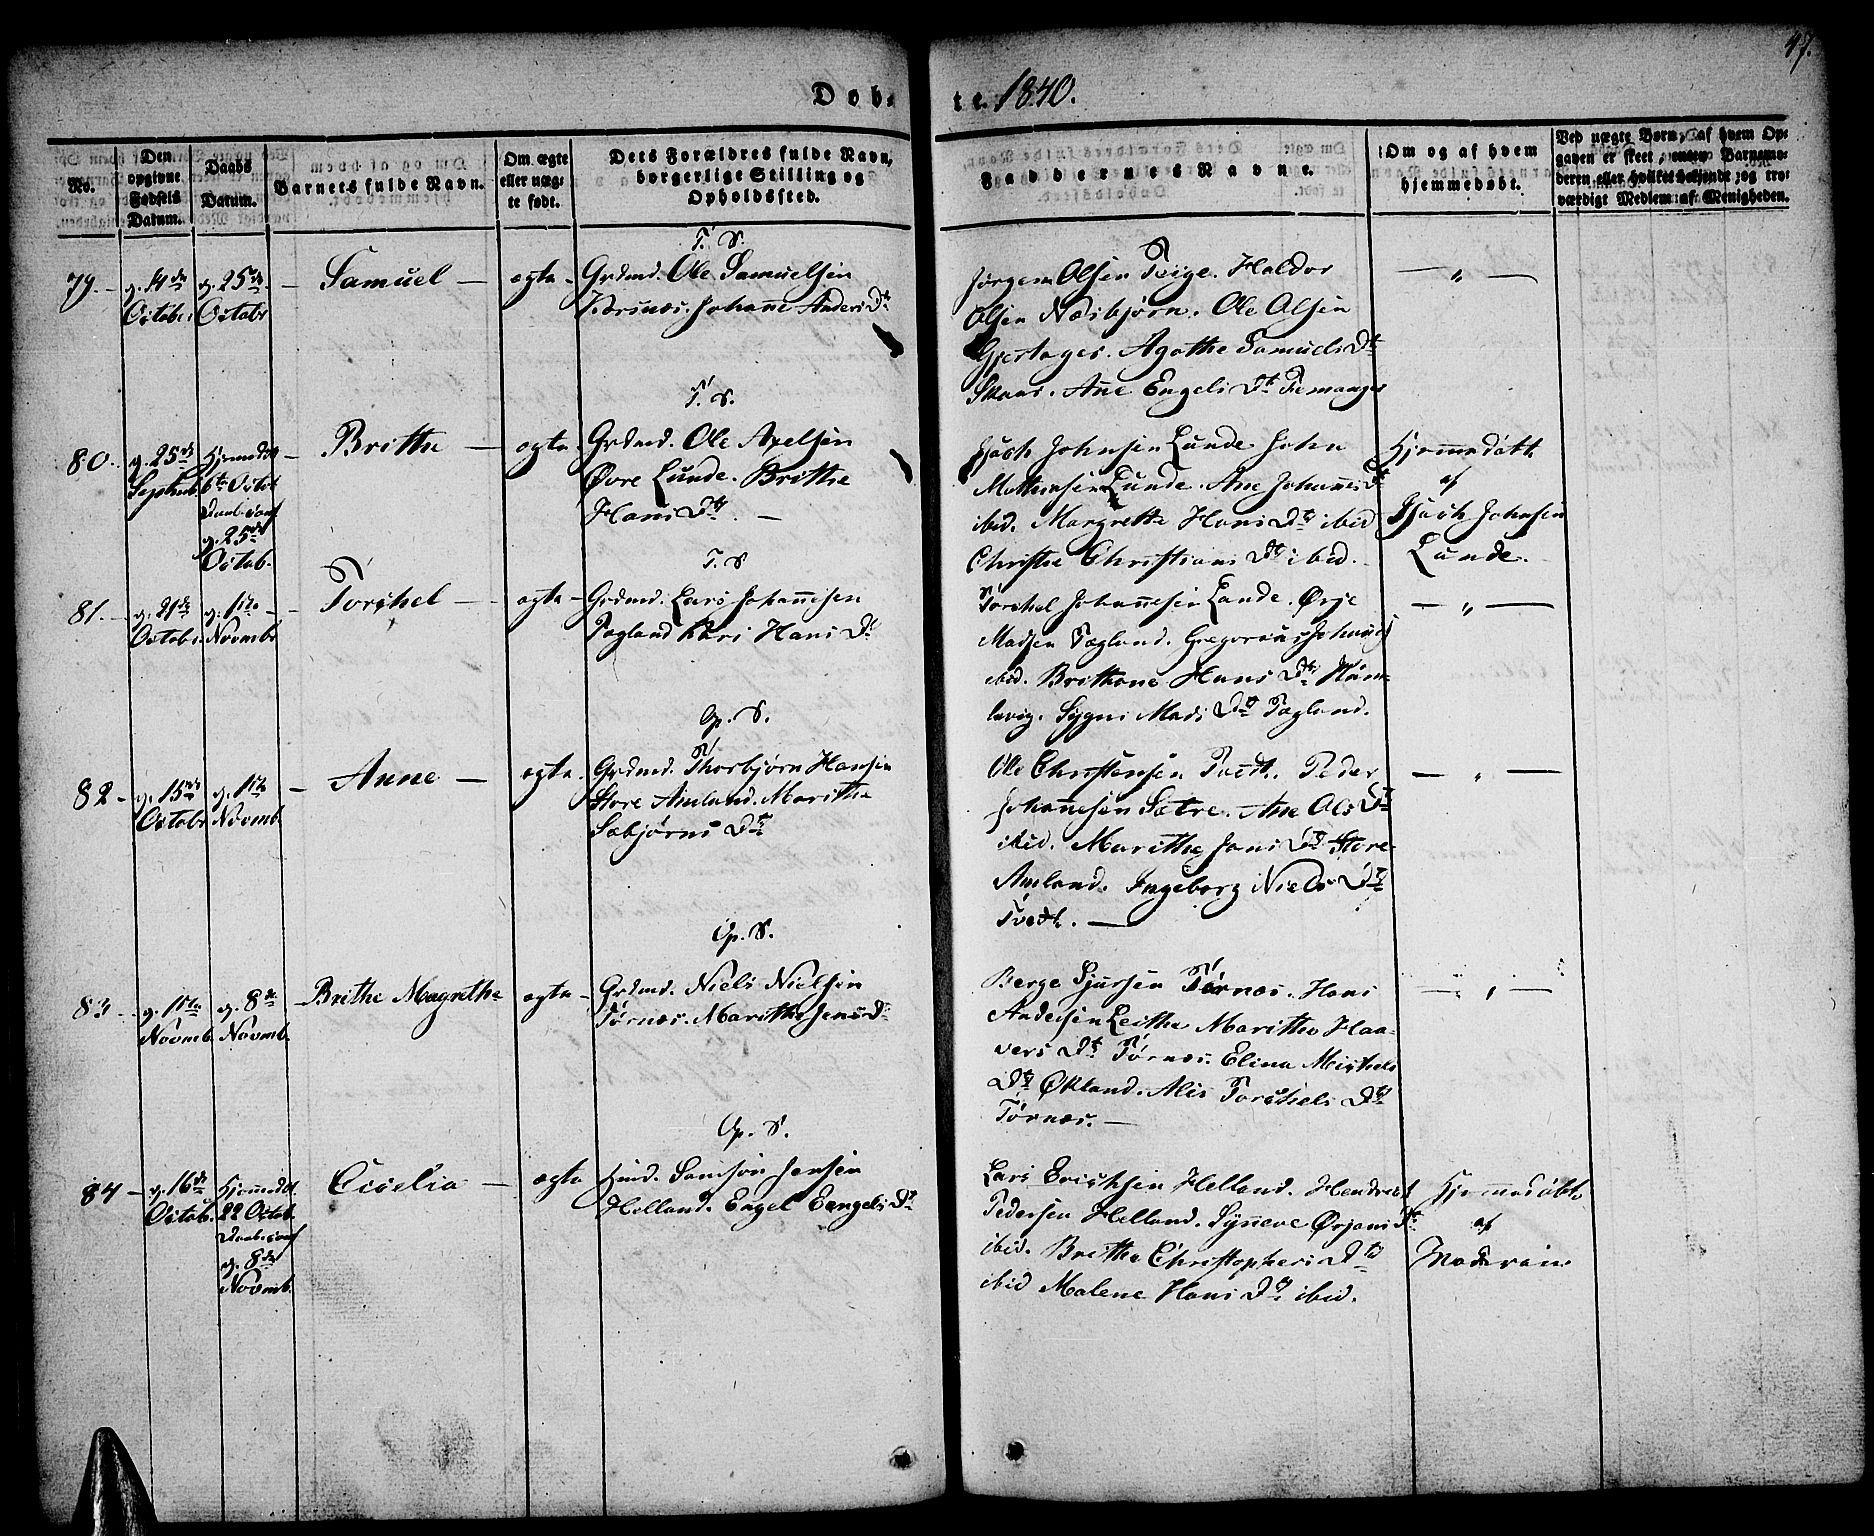 47.
Døbte 1840.
No.
Den opgivne Fødsels Datum.
Daabs Datum.
Barnets fulde Navn.
Om ægte eller uægte født.
Dets Forældres fulde Navn, borgerlige Stilling og Opholdssted.
Faddernes Navne.
Om og af hvem hjemmedøbt.
Ved uægte Børn, af hvem Opgaven er skeet, enten Barnemoderen eller hvilket bekjendt og troværdigt Medlem af Menigheden.
T. S.
79. d. 14de October d. 25de Octobr
Samuel — ægte
Grdmd. Ole Samuelsen
Johanne Anders Dt
Jørgen Olsen Teige. Haldor
Olsen Næsbjørn. Ole Olsen
Gjerstages. Agathe Samuels Dt
Skaar. Ane Engels Dt Femanger
— " —
T. S.
80. d. 25de Septemb. Hjemmedøbt
6te Octob.
d. 25de
Octob.
Brithe — ægte
Grdmd. Ole Axelsen
Øvre Lunde. Brithe
Hans Dt. —
Johnsen Lunde. John
Mathiasen Lunde. Ane Johannes Dt
ibid. Margrethe Hans Dt ibid
Christhe Christians Dt ibid.
Hjemmedøbt
af
Johnsen
Lunde.
T. S
81. d. 21de Octobr. d. 1ste Novembr
Torchel — ægte
Grdmd. Lars Johannesen
Tægland Kari Hans Dt
Torchel Johannesen Lande. Ørje
Madsen Tægland. Gregorius Johannes
ibid. Brithane Hans Dt Ham-
levig. Sygni Mads Dt Tægland.
— " —
Op. S.
82. d. 15de Octobr d. 1ste Novemb.
Anne — ægte
Grdmd. Thorbjørn Hansen
Store Amland. Marithe
Sæbjørns Dt
Ole Christensen Tvedt. Peder
Johannesen Sætre. Ane Ols Dt
ibid. Marithe Jans Dt Store
Amland. Ingeborg Niels Dt
Tvedt. —
— " —
Op. S.
83. d. 1ste Novmb. d. 8de Novmb.
Brithe Magrethe ægte
Grdmd. Niels Nielsen
Tørnæs. Marithe Jens Dt
Berge Sjursen Tørnæs. Hans
Andersen Leithe Marithe Haa-
vers Dt Tørnæs. Elina Michels
Dt Økland. Alis Torchels Dt
Tørnæs. —
— " —
Op. S.
84 — d. 16de Octob. Hjemmedøbt.
22 Octob.
d. 8de
Novmb.
Cicelia — ægte
Huusmd. Samson Jensen
Helland. Engel Eengels Dt
Lars Erichsen Helland. Hendrich
Pedersen Helland. Synneve Ørjans Dt
ibid. Brithe Christophers Dt
ibid Malene Hans Dt ibid.
Hjemmedøbt
af
Moderen